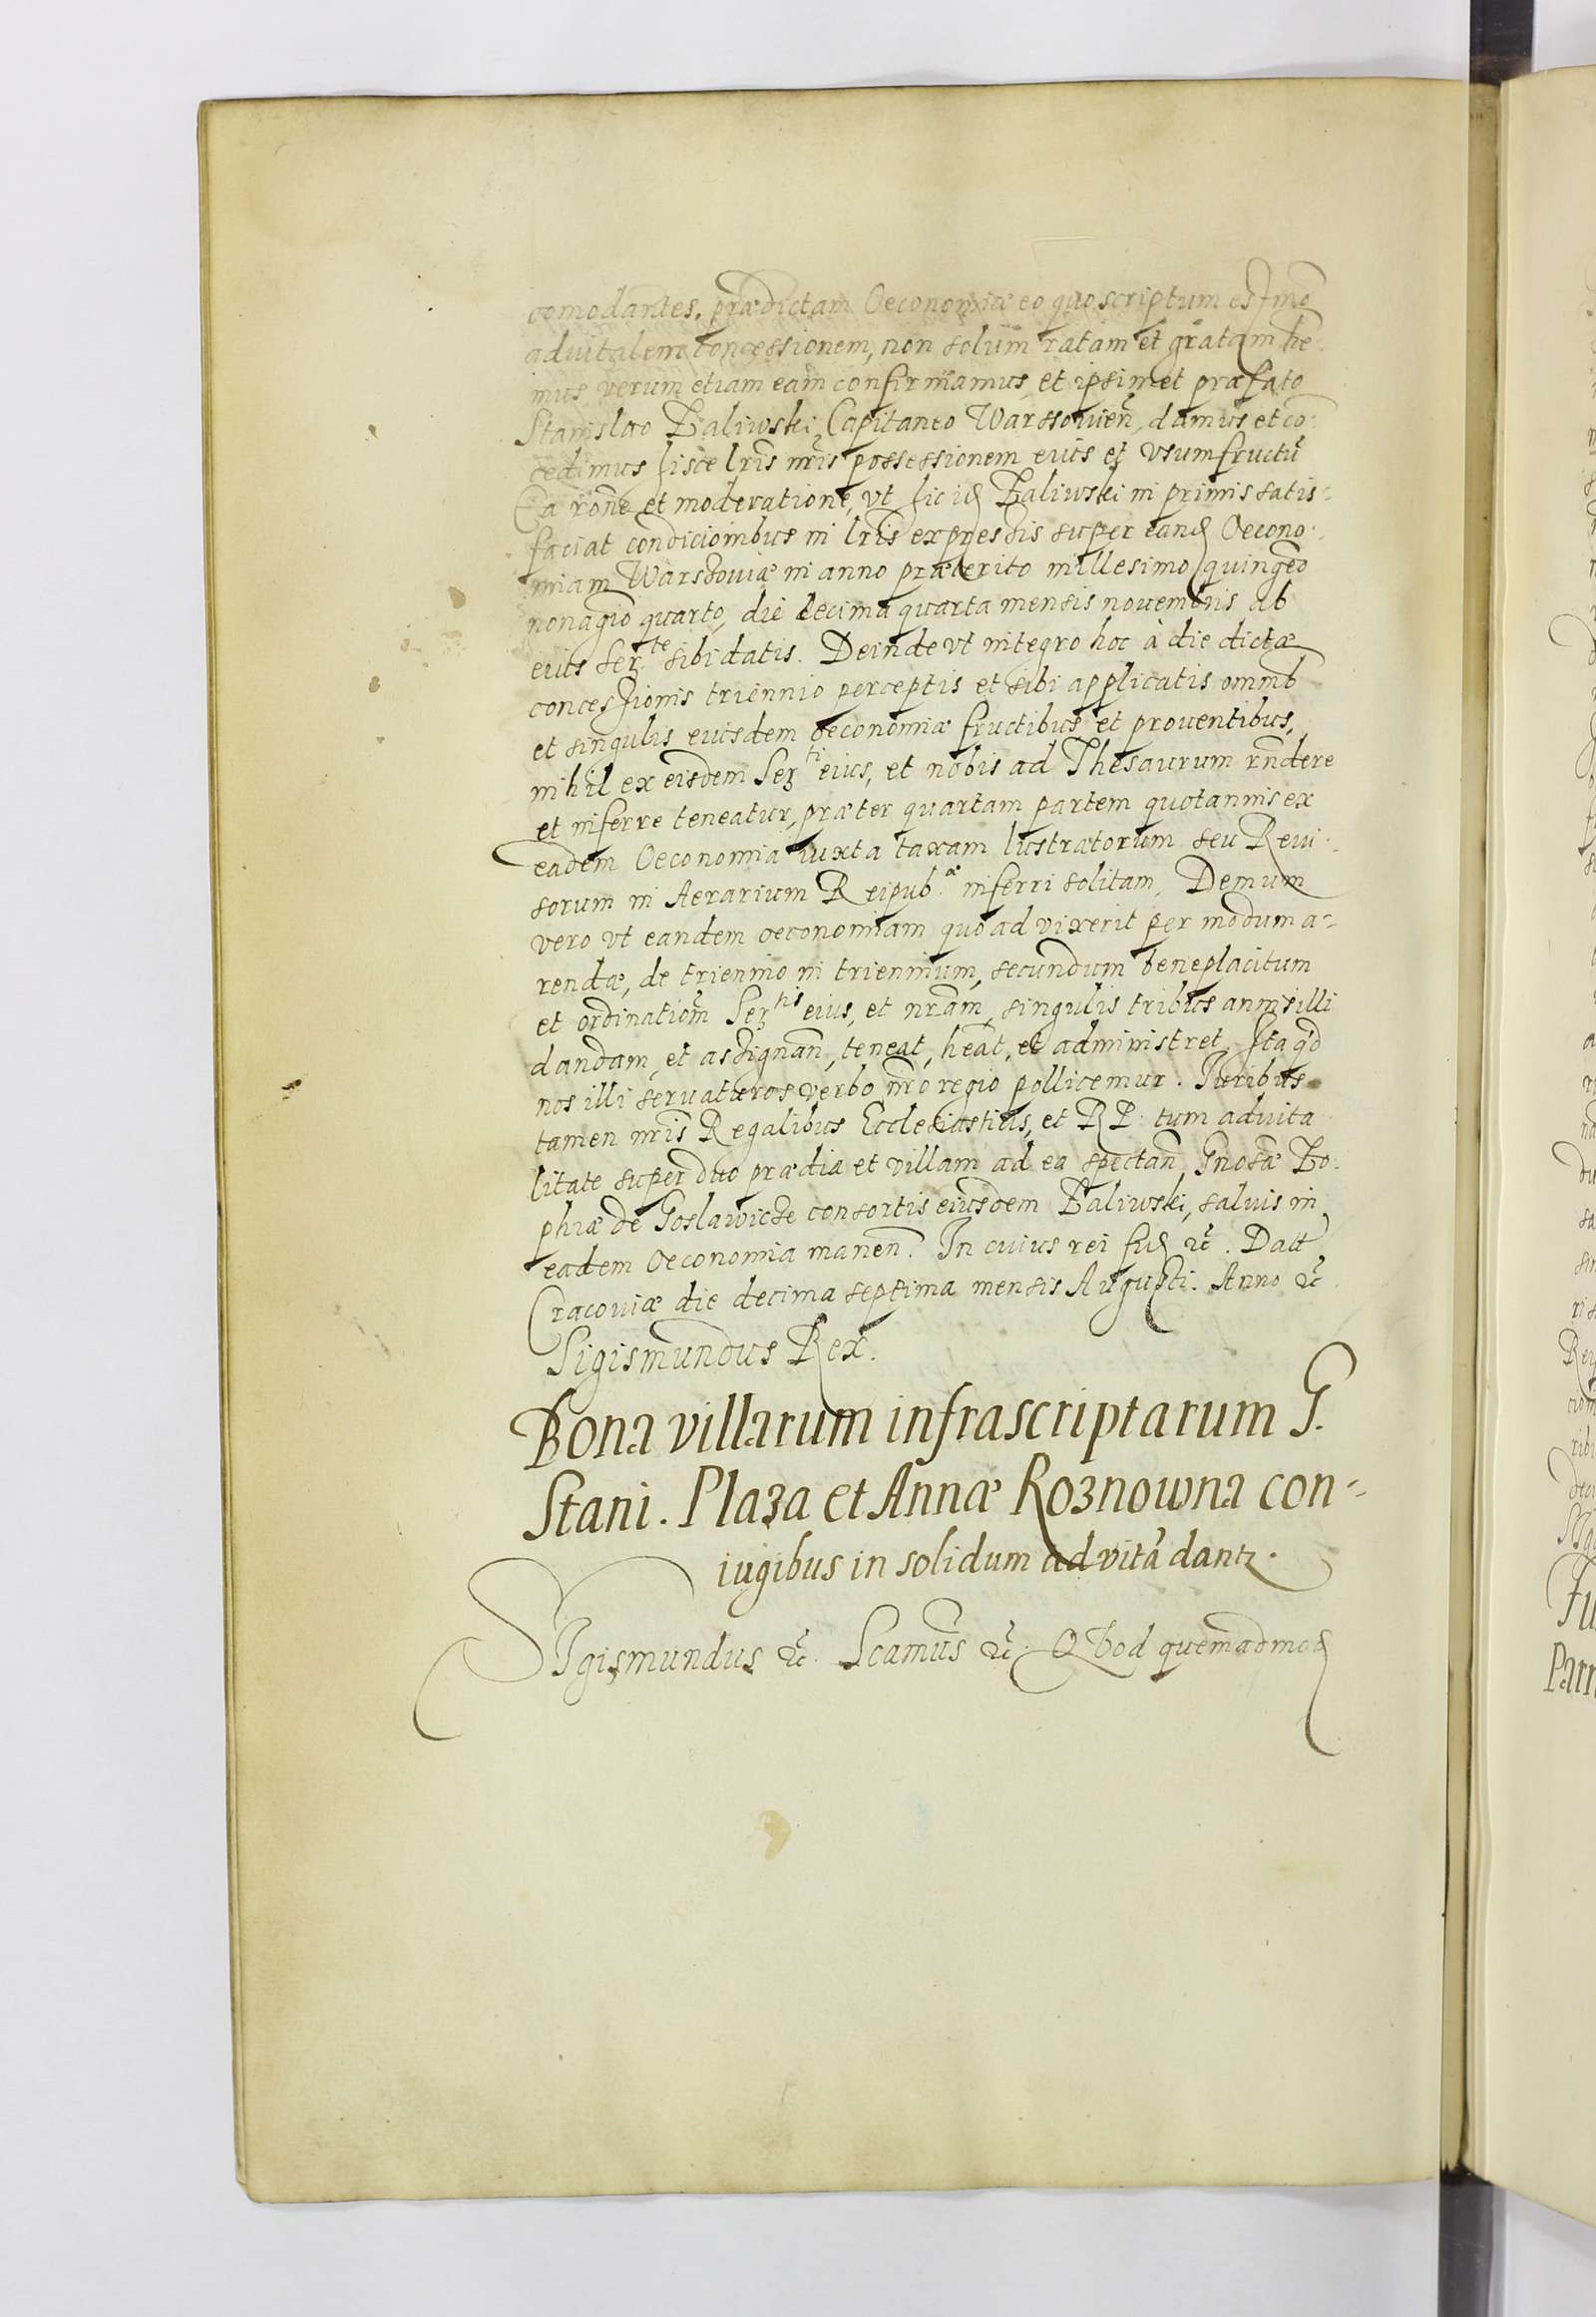 comodantes. prædictam Oeconomiæ eo quo scriptum est mõ
aduitalem concessionem, non solum ratam et gratam he
mus verum etiam eam confirmamus, et ipsimet præfato
Stanislao Zaliwski Capitaneo Warssouien̄, damus et co
cedimus hisce lr̄is nr̄is possessionem eius et vsumfructū
Ea rōne et moderatione, vt hic id Zaliwski in primis satis
faciat condicioinbus in lr̄is expressis super eand Oecono
miam Warszouiæ in anno præterito millesimo quingēo
nonagīo quarto, die decima quarta mensis nouembris ab
eius Serᵗᵉ sibi datis. Deinde vt integro hoc à die dictæ
concessionis triennio perceptis et sibi applicatis omnib
et singulis eiusdem oeconomiæ fructibus et prouentibus,
nihil ex eisdem Serᵗⁱ eius, et nobis ad Thesaurum rn̄dere
et inferre teneatur, præter quartam partem quotannis ex
eadem Oeconomia iuxta taxam lustratorum seu Reui-
sorum in Aerarium Reipub.æ inferri solitam, Demum
vero vt eandem oeconomiam quoad vixerit per modum a-
rendæ, de triennio in triennium, secundum beneplacitum
et ordinatiōm Serᵗⁱˢ eius, et nr̄am, singulis tribus annis illi
dandam, et assignan̄, teneat, heāt, et administret, Ita qd
nos illi seruaturos verbo nr̄o regio pollicemur. Iuribus
tamen nr̄is Regalibus Ecclesiasticis, et RP. tum aduita
litate super duo prædia et villam ad ea spectan̄, Gnosæ Zo-
phiæ de Goslawicze consortis eiusdem Zaliwski, saluis in
eadem Oeconomia manen̄. In cuius rei fid &c̄. Datt
Cracouiæ die decima septima mensis Augusti. Anno &c̄
Sigismundus Rex.
Bona villarum infrascriptarum G.
Stani. Plaza et Annæ Roznowna con-
iugibus in solidum ad vitā dantr.
SIgismundus &c̄. Scamūs &c̄. QVod quemadmod